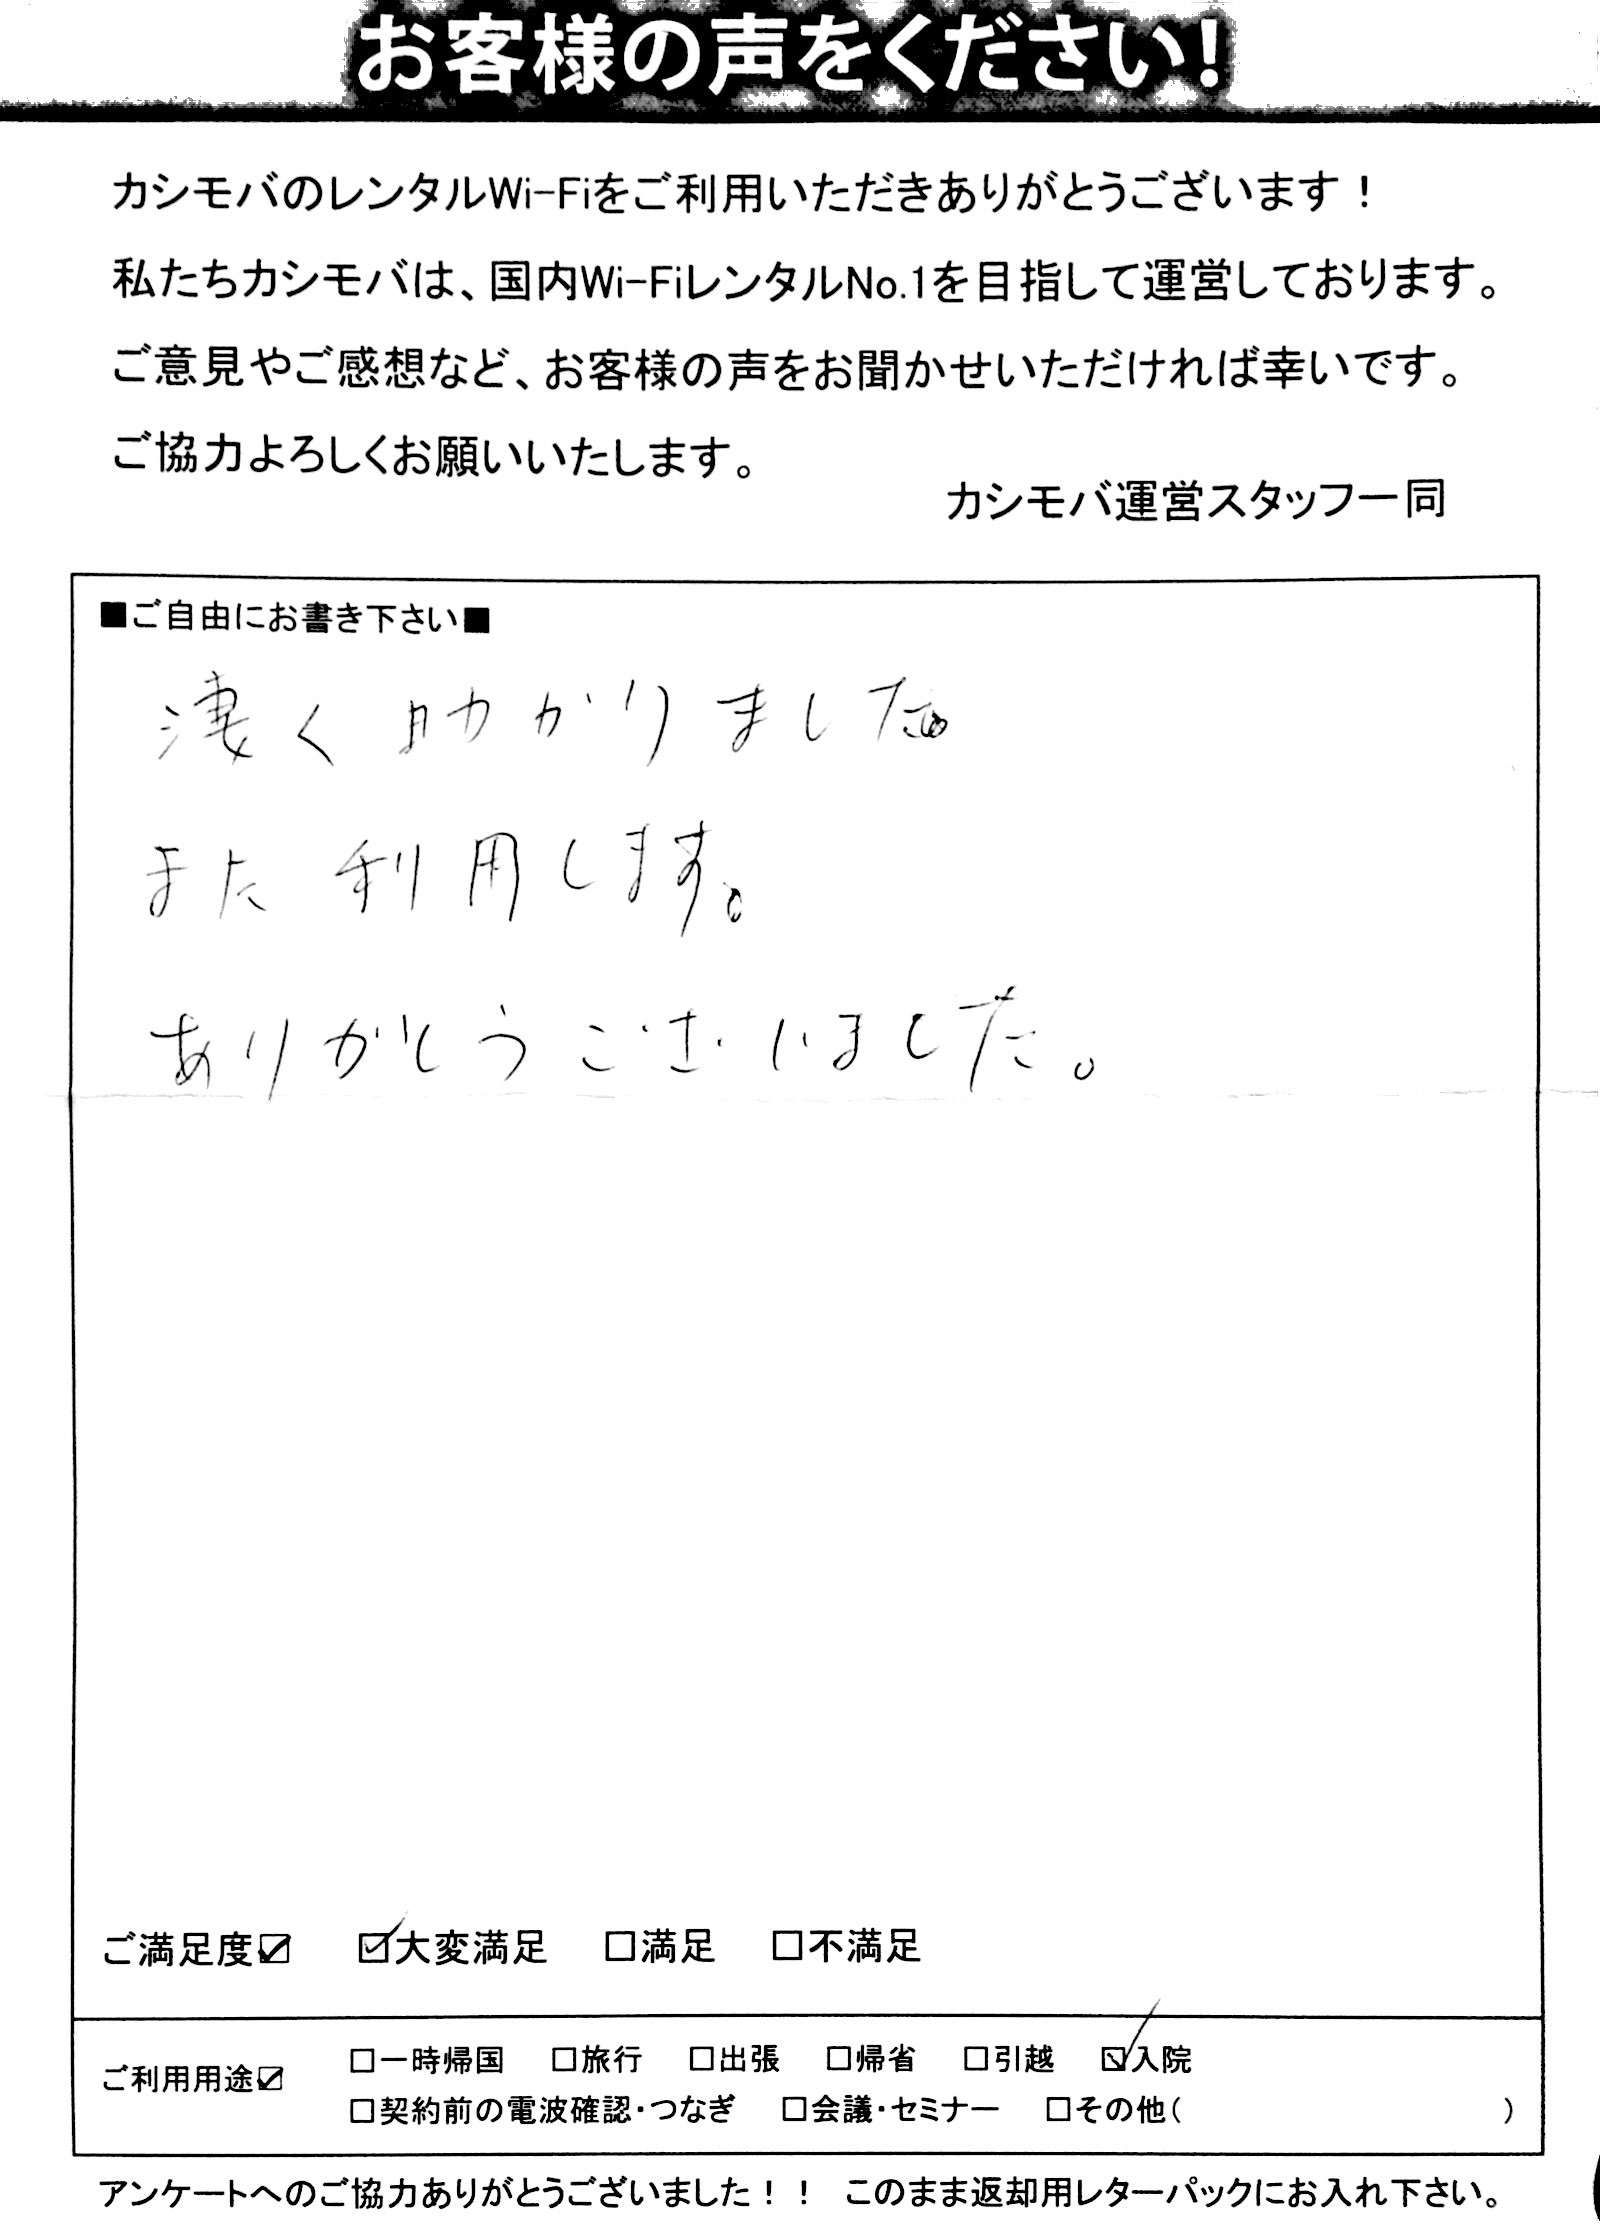 お客様の声をください!
カシモバのレンタルWi-Fiをご利用いただきありがとうございます！
私たちカシモバは、国内Wi-FiレンタルNo.1を目指して運営しております。
ご意見やご感想など、お客様の声をお聞かせいただければ幸いです。
ご協力よろしくお願いいたします。
カシモバ運営スタッフ一同
■ご自由にお書き下さい■
凄く助かりました。
また利用します。
ありがとうございました。
ご満足度☑ ☑大変満足 □満足 □不満足
ご利用用途☑ □一時帰国 □旅行 □出張 □帰省 □引越 ☑入院
□契約前の電波確認・つなぎ □会議・セミナー □その他( )
アンケートへのご協力ありがとうございました！！ このまま返却用レターパックにお入れ下さい。